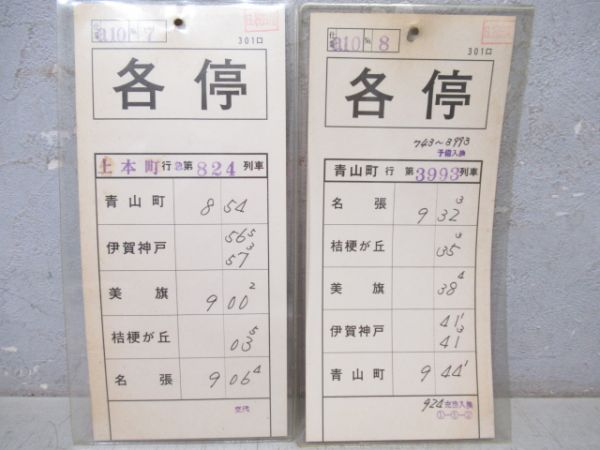 a10 № 7
301口
各停
上本町行 第824列車
青山町 8 54
伊賀神戸 56⁵
57³
美旗 9 00²
桔梗が丘 03⁵
名張 9 06⁴
交代
a10 № 8
301口
各停
743～3993
予備入換
青山町行 第3993列車
名張 9 32³
桔梗が丘 35³
美旗 38⁴
伊賀神戸 41¹
41³
青山町 9 44¹
924
①-③-②